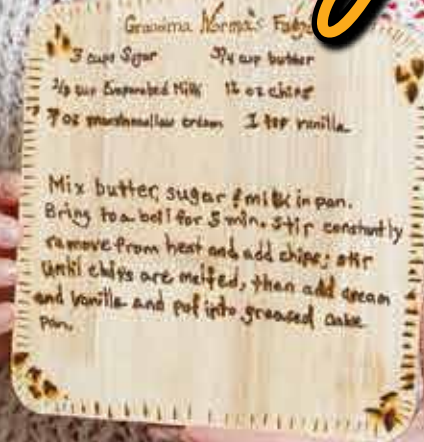 Gramma Norma's Fudge
3 cups Sugar 3/4 cup butter
2/3 cup Evaporated Milk 12 oz chips
7 oz marshmallow cream 1 tsp vanilla
Mix butter, sugar & milk in pan.
Bring to a boil for 5 min. Stir constantly
remove from heat and add chips; stir
until chips are melted, then add cream
and vanilla and put into greased cake
pan.